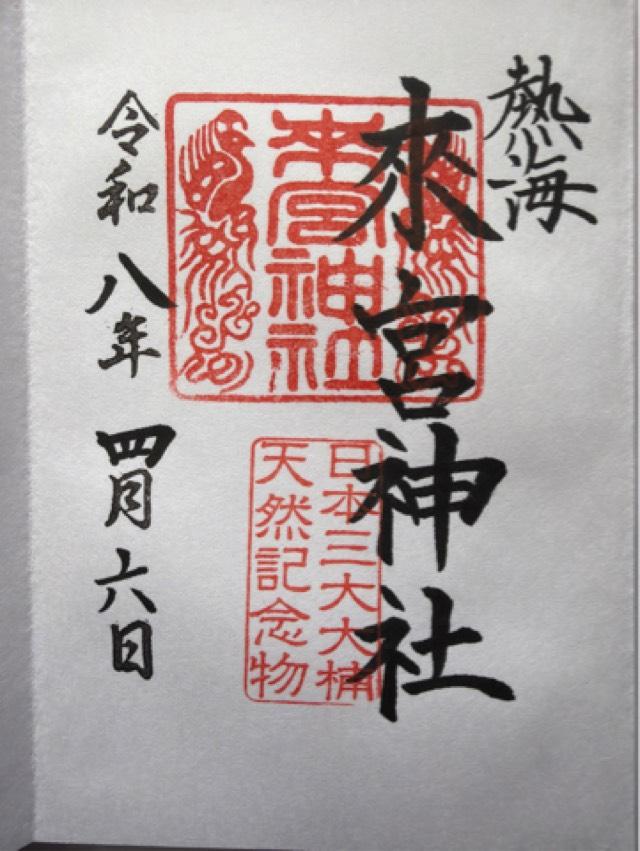 熱海
來宮神社
來宮神社
日本三大大楠
天然記念物
令和八年四月六日